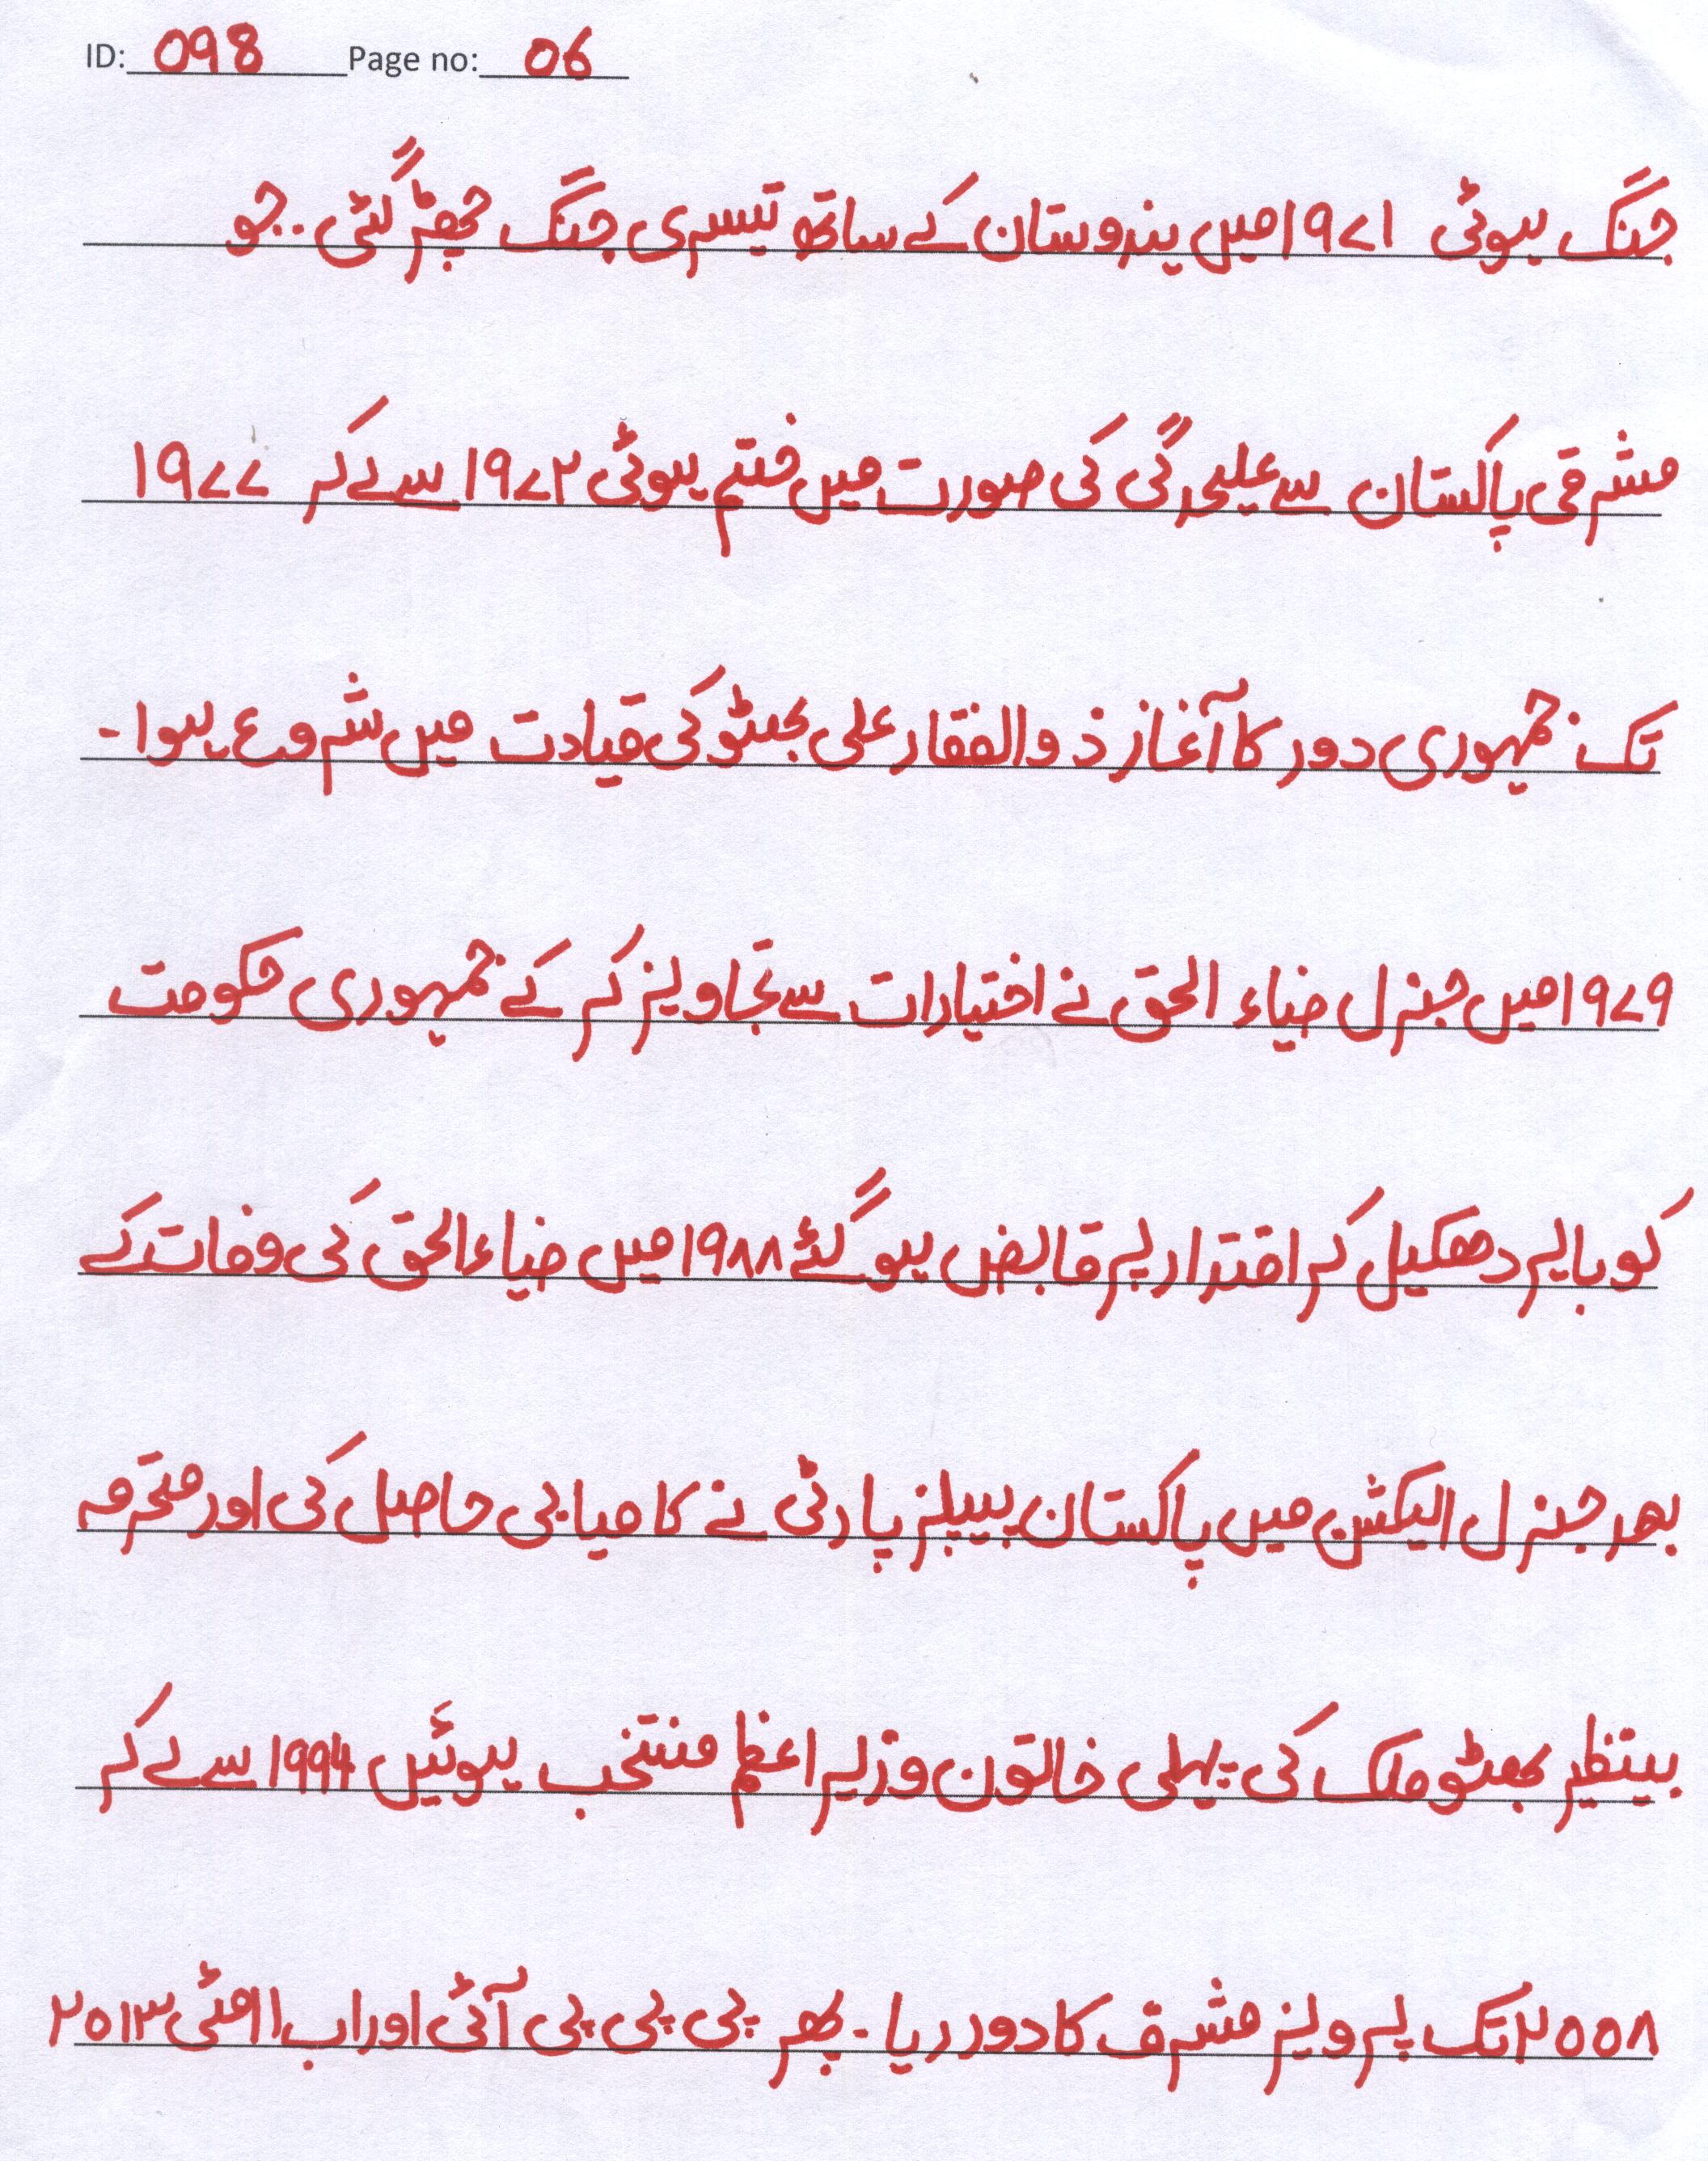 ID: 098 Page no: 06
جنگ ہوئی ۱۹۷۱ میں ہندوستان کے ساتھ تیسری جنگ چھڑ گئی۔ جو
مشرقی پاکستان سے علیحدگی کی صورت میں ختم ہوئی ۱۹۷۲ سے لے کر ۱۹۷۷
تک جمہوری دور کا آغاز ذوالفقار علی بھٹو کی قیادت میں شروع ہوا۔
۱۹۷۹ میں جنرل ضیاء الحق نے اختیارات سے تجاویز کر کے جمہوری حکومت
کو باہر دھکیل کر اقتدار پر قابض ہو گئے ۱۹۸۸ میں ضیاء الحق کی وفات کے
بعد جنرل الیکشن میں پاکستان پیپلز پارٹی نے کامیابی حاصل کی اور محترمہ
بینظیر بھٹو ملک کی پہلی خاتون وزیر اعظم منتخب ہوئیں ۱۹۹۴ سے لے کر
۲۰۰۸ تک پرویز مشرف کا دور رہا۔ پھر پی پی پی آئی اور اب ۱۱ مئی ۲۰۱۳